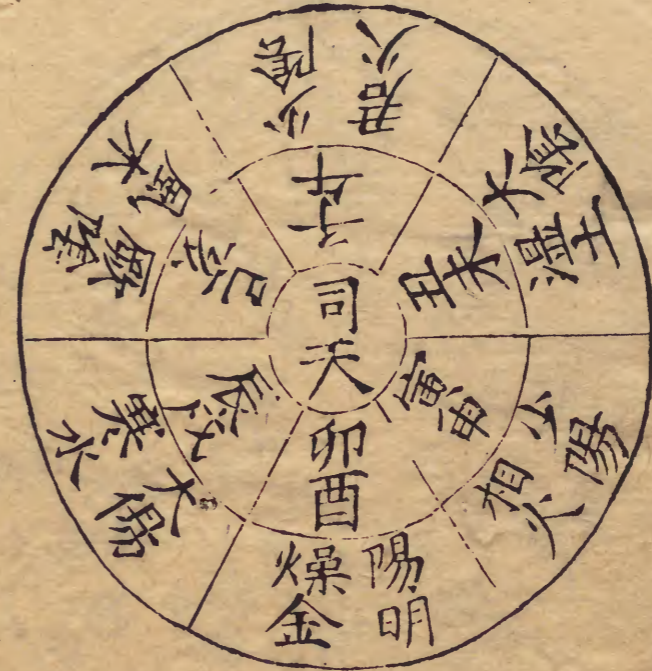 司天
子午
少陰
君火
丑未
大陰
湿土
寅申
少陽
相火
卯酉
陽明
燥金
辰戌
大陽
寒水
巳亥
厥陰
風木